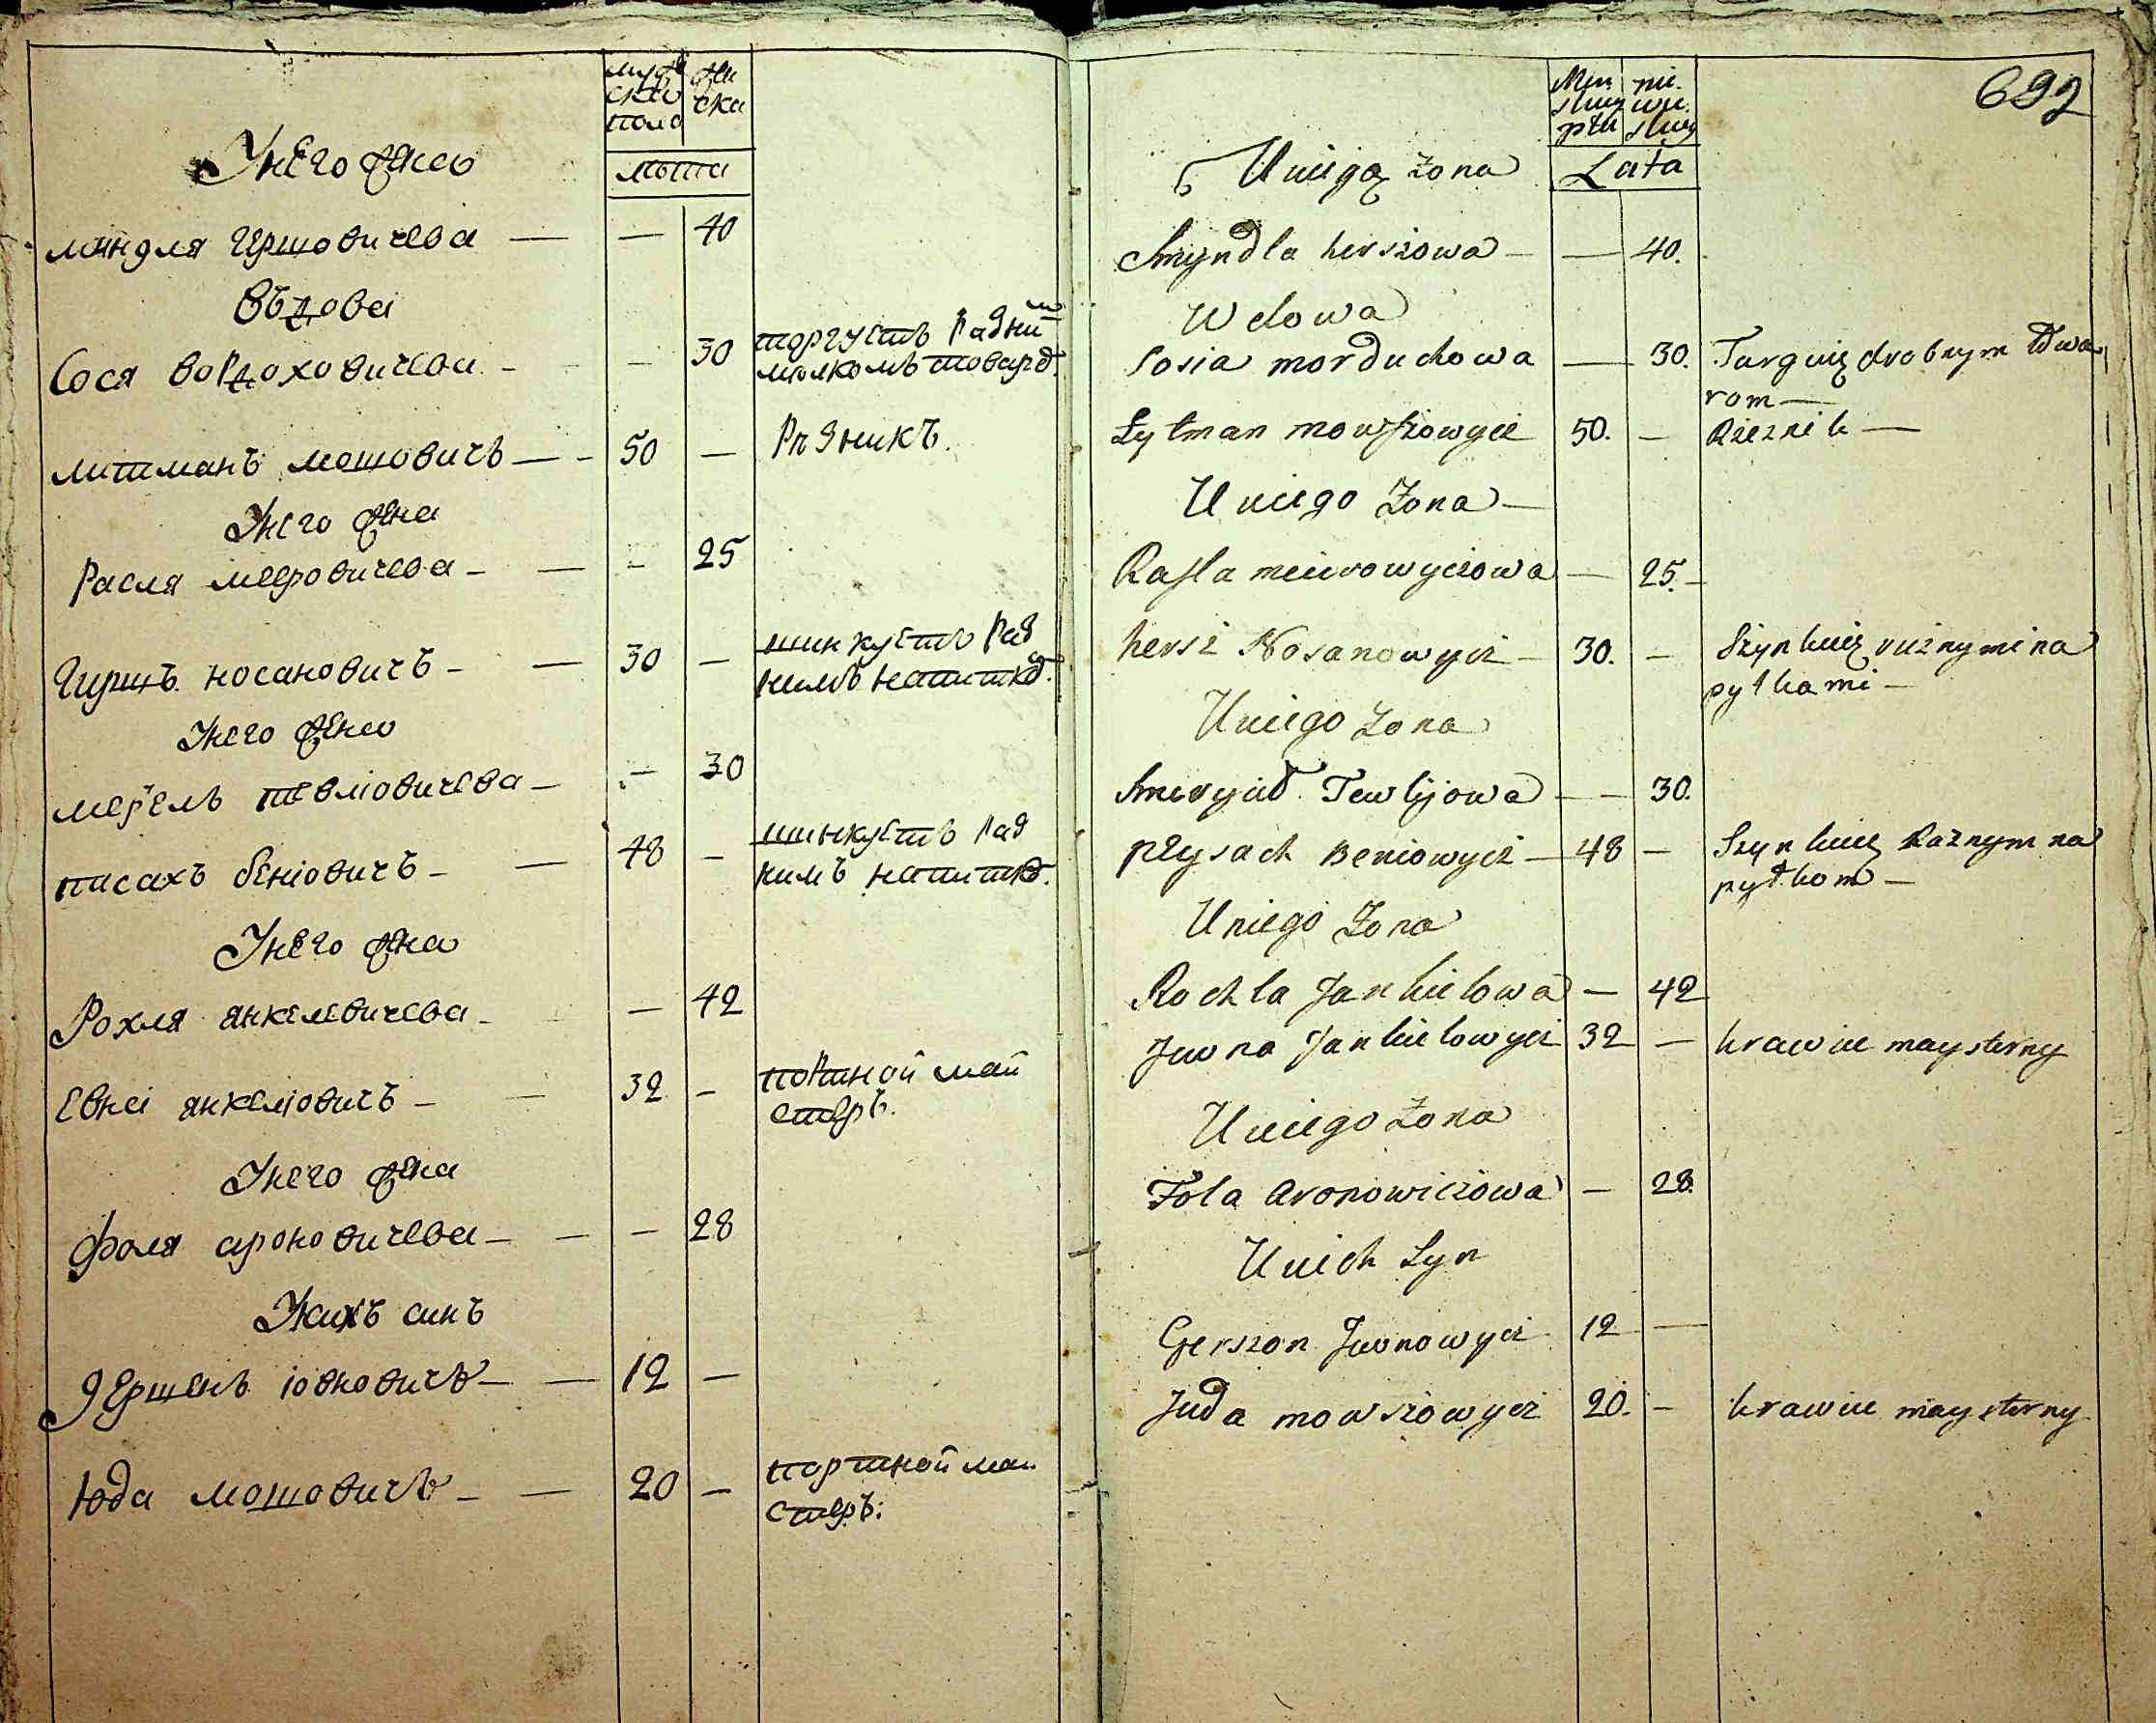 муже
ска
пола
же
ска
лѣта
Унего жена
миндля гершовичева — — 40
вдова
Сося вордоховичева - - 30 торгуетъ разним
мелкомъ товаро.
литманъ мошовичъ — - 50 — Рѣзникъ.
Унего жена
Расля мееровичева - — - 25
Гиршъ носановичъ - — 30 — шинкуетъ раз
нимъ напитко.
Унего жена
мерель тевліовичева - — 30
писахъ беніовичъ - — 48 - шинкуетъ раз
нимъ напитко.
Унего жена
Рохля янкелевичева - — 42
Евна янкеліовичъ - - 32 - портной май
стеръ.
Унего жена
фоля ароновичева - — — 28
Унихъ синъ
гершенъ іовновичъ - — 12 —
Юда мошовичъ - — 20 — портной май
стеръ:
692
Lata
U niego zona
Smyndla herszowa - — 40.
Wdowa
Sosia morduchowa — 30. Targuię drobnym towa
rom —
Lytman mowszowycz 50. — Rzeznik —
U niego Zona —
Rasla meirowyczowa — 25. -
hersz Nosanowycz - 30. - Szynkuię rużnymi na
pytkami -
U niego Zona
Smeryld Tewlijowa — - 30.
Peysach Beniowycz — 48 — Szynkuię Rażnym na
pytkom —
U niego Zona
Rochla Jankielowa — 42
Juwna Jankielowycz 32 — krawiec maysterny
U niego Zona
Fola aronowiczowa — 28.
U nich Syn
Gerszon Juwnowycz 12 —
Juda mowszowycz 20. - krawiec maysterny